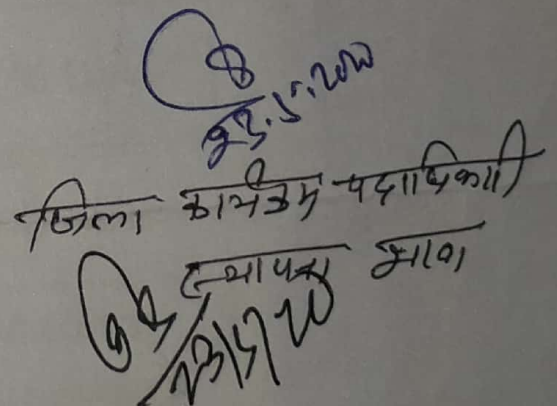 23.5.2020
जिला कार्यक्रम पदाधिकारी
स्थापना
23/5/20